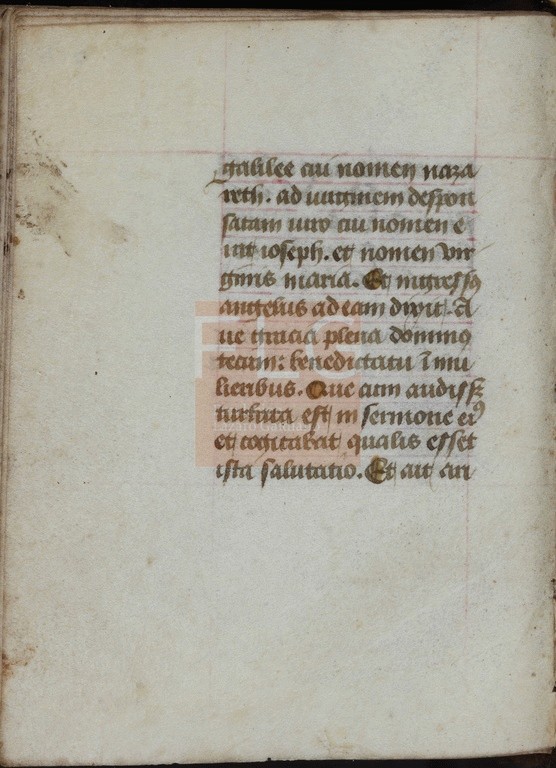 galilee cui nomen naza
reth. ad uirginem despon
satam uiro cui nomen e
rat ioseph. et nomen vir
ginis maria. Et ingressꝯ
angelus ad eam dixit. A
ue gracia plena dominꝯ
tecum: benedicta tu ī mu
lieribus. Que cum audissꝫ
turbata est in sermone eiꝯ
et cogitabat qualis esset
ista salutatio. Et ait an
FLG
Lázaro Galdiano